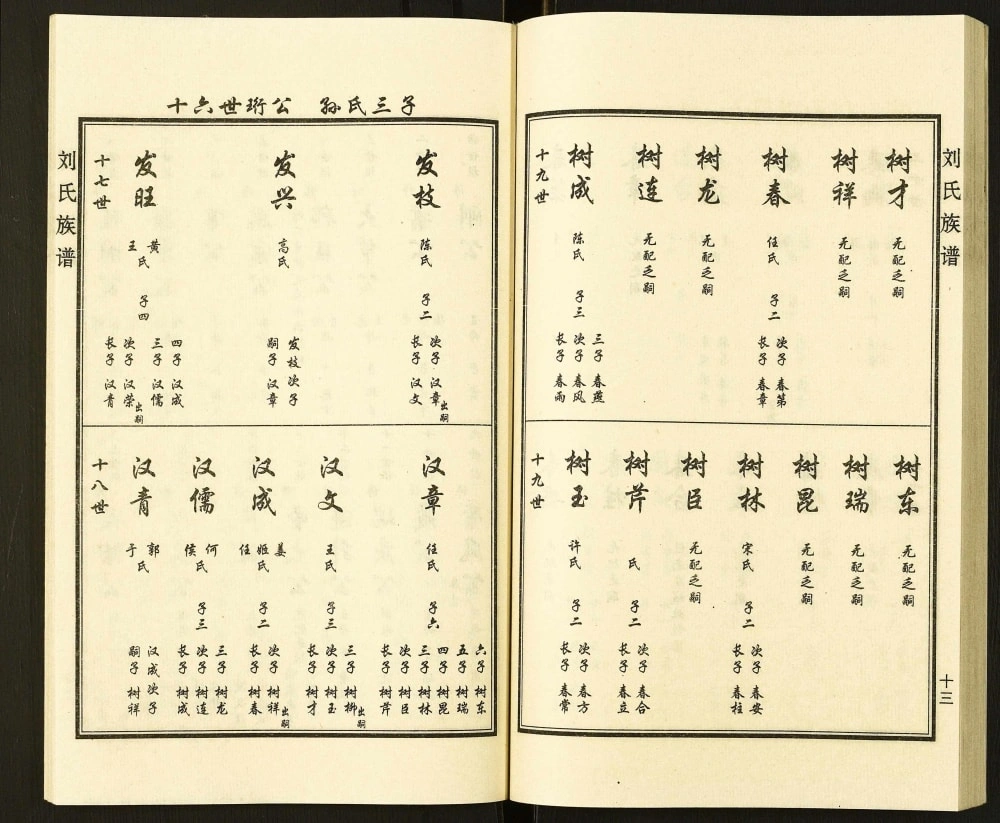 刘氏族谱
十六世珩公 孙氏三子
十七世
发旺
王 黄氏
子四
长子 汉青
次子 汉荣 出嗣
三子 汉儒
四子 汉成
发兴
高氏
嗣子 汉章
发枝次子
发枝
陈氏
子二
长子 汉文
次子 汉章 出嗣
十八世
汉青
于 郭氏
嗣子 树祥
汉成次子
汉儒
侯 何氏
子三
长子 树成
次子 树连
三子 树龙
汉成
任 姬 姜氏
子二
长子 树春
次子 树祥 出嗣
汉文
王氏
子三
长子 树才
次子 树玉
三子 树柳 出嗣
汉章
任氏
子六
长子 树芹
次子 树臣
三子 树林
四子 树昆
五子 树瑞
六子 树东
十九世
树成
陈氏
子三
长子 春雨
次子 春风
三子 春燕
树连
无配乏嗣
树龙
无配乏嗣
树春
任氏
子二
长子 春章
次子 春第
树祥
无配乏嗣
树才
无配乏嗣
十九世
树玉
许氏
子二
长子 春常
次子 春方
树芹
氏
子二
长子 春立
次子 春合
树臣
无配乏嗣
树林
宋氏
子二
长子 春柱
次子 春安
树昆
无配乏嗣
树瑞
无配乏嗣
树东
无配乏嗣
刘氏族谱
十三